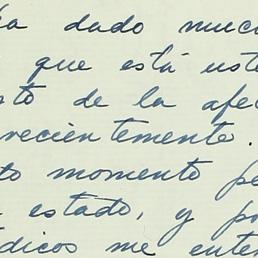 ha dado muc
que está uste
sto de la afec
recientemente.
to momento pe
estado, y po
dicos me enter